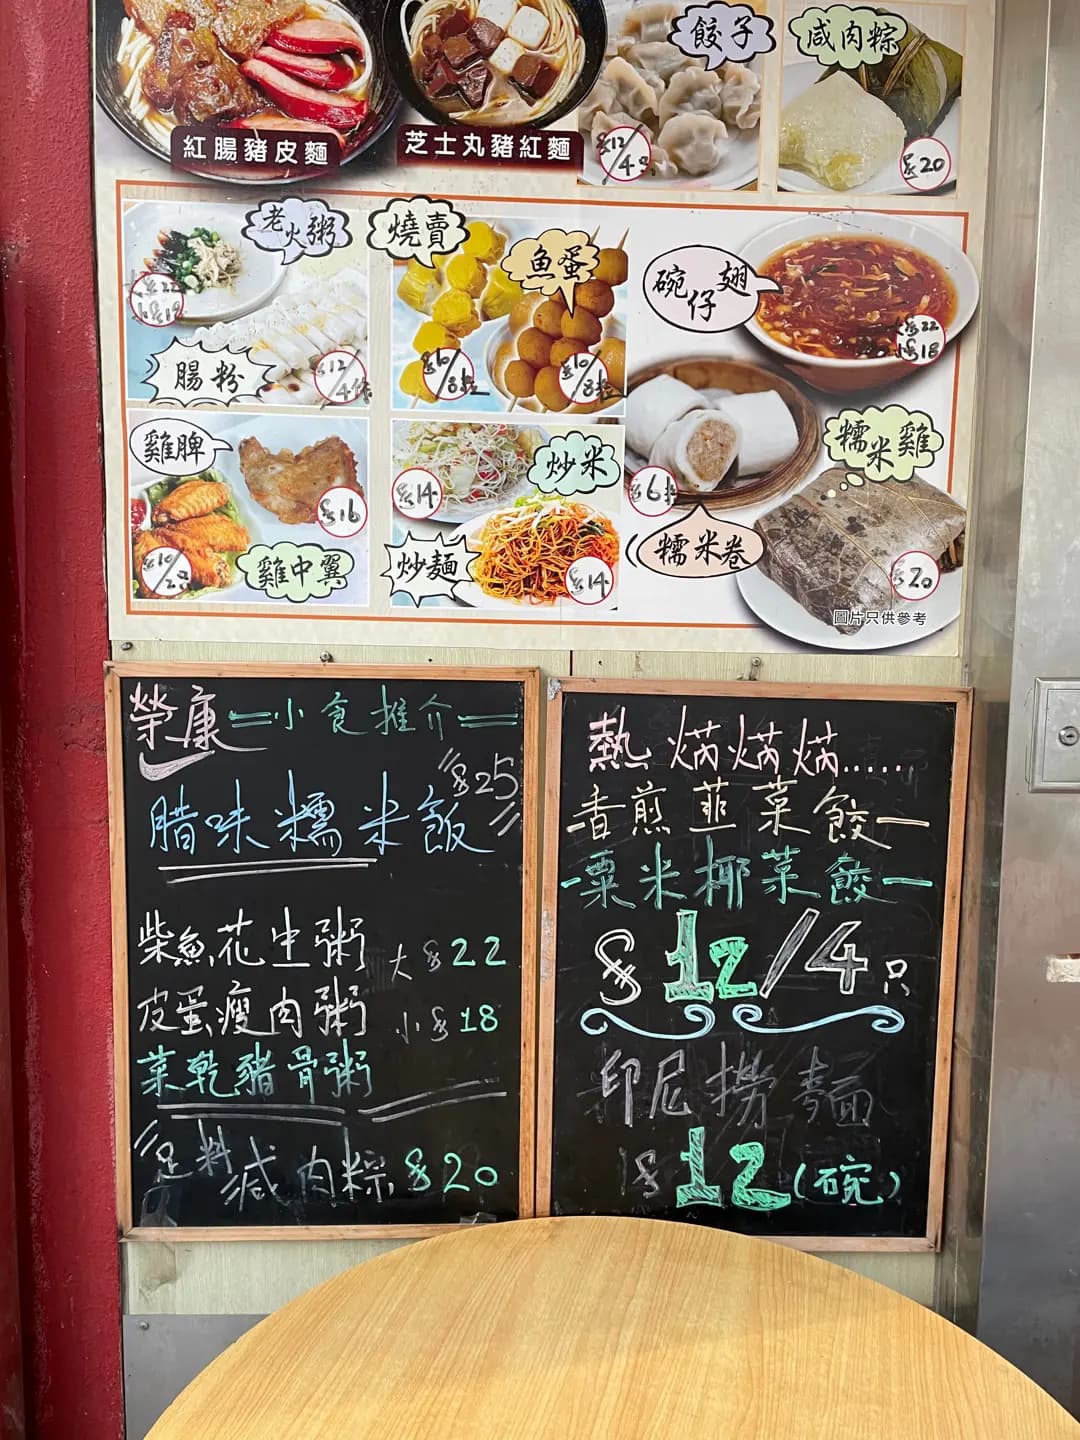 紅腸豬皮麵
芝士丸豬紅麵
餃子
$12/4只
咸肉粽
$20
老火粥
大$22
小$18
腸粉
$12/4條
燒賣
$10/8粒
魚蛋
$10/8粒
碗仔翅
大$22
小$18
雞脾
$16
雞中翼
$10/2只
炒米
$14
炒麵
$14
$6/粒
糯米卷
糯米雞
$20
圖片只供參考
榮康=小食推介=
$25
腊味糯米飯
柴魚花生粥 大$22
皮蛋瘦肉粥 小$18
菜乾豬骨粥
足料咸肉粽$20
熱焫焫焫......
香煎韮菜餃
粟米椰菜餃
$12/4只
印尼撈麵
$12(碗)